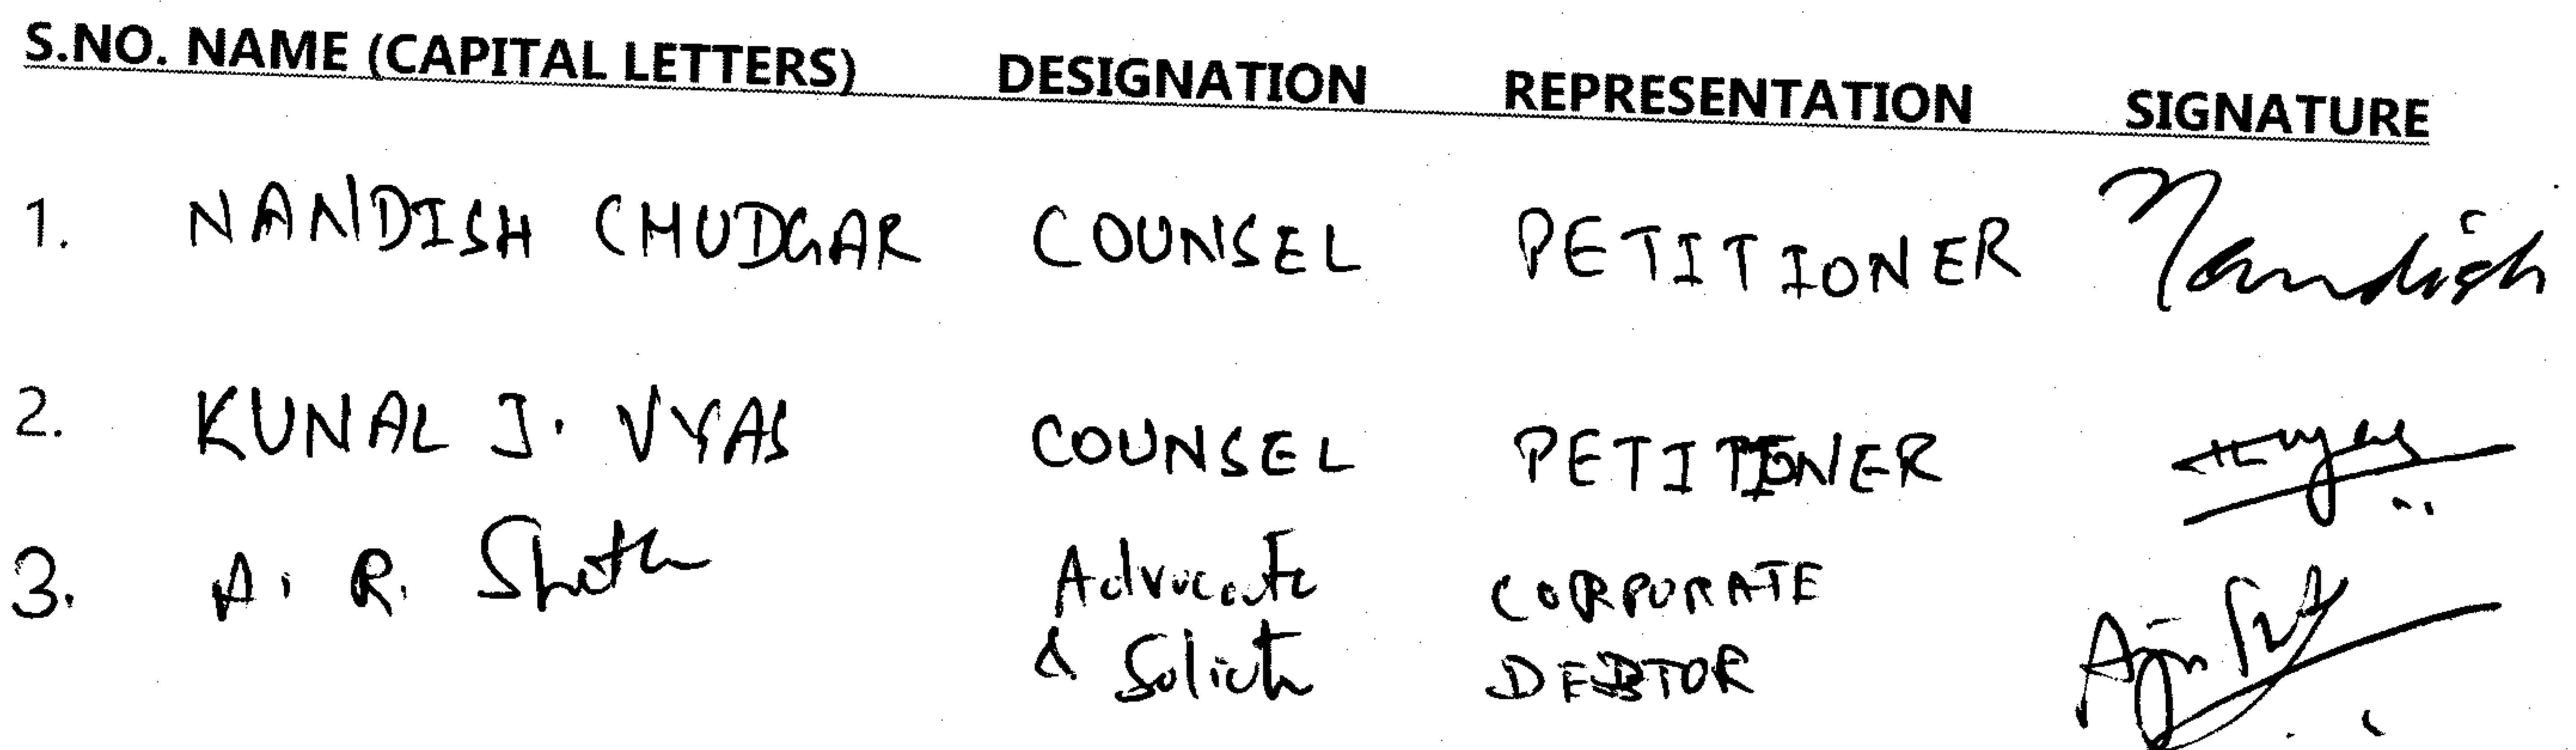 S.NO. NAME (CAPITAL LETTERS) DESIGNATION REPRESENTATION SIGNATURE
1. NANDISH CHUDGAR COUNSEL PETITIONER Nandish
2. KUNAL J. VYAS COUNSEL PETITIONER
3. A. R. Sheth Advocate CORPORATE
& DEBTOR